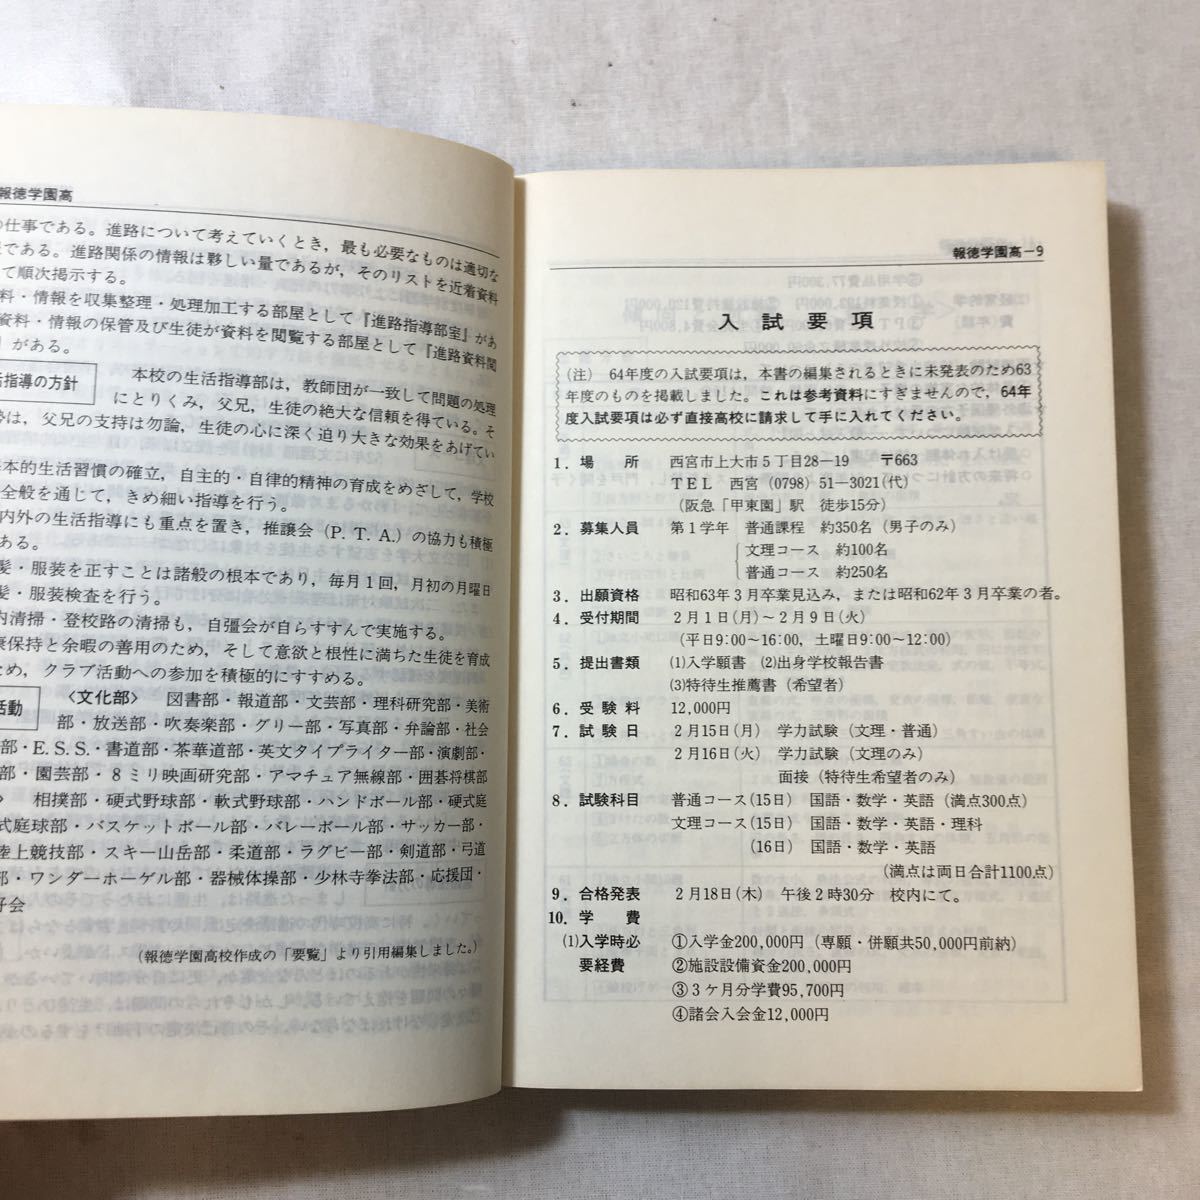 報徳学園高
の仕事である。進路について考えていくとき，最も必要なものは適切な
である。進路関係の情報は夥しい量であるが，そのリストを近着資料
て順次掲示する。
料・情報を収集整理・処理加工する部屋として『進路指導部室』があ
資料・情報の保管及び生徒が資料を閲覧する部屋として『進路資料閲
』がある。
活指導の方針
本校の生活指導部は，教師団が一致して問題の処理
にとりくみ，父兄，生徒の絶大な信頼を得ている。そ
勢は，父兄の支持は勿論，生徒の心に深く迫り大きな効果をあげてい
基本的生活習慣の確立，自主的・自律的精神の育成をめざして，学校
全般を通じて，きめ細い指導を行う。
内外の生活指導にも重点を置き，推譲会（P. T. A.）の協力も積極
ある。
髪・服装を正すことは諸般の根本であり，毎月１回，月初の月曜日
髪・服装検査を行う。
内清掃・登校路の清掃も，自彊会が自らすすんで実施する。
康保持と余暇の善用のため，そして意欲と根性に満ちた生徒を育成
ため，クラブ活動への参加を積極的にすすめる。
活動
〈文化部〉 図書部・報道部・文芸部・理科研究部・美術
部・放送部・吹奏楽部・グリー部・写真部・弁論部・社会
部・E. S. S.・書道部・茶華道部・英文タイプライター部・演劇部・
部・園芸部・８ミリ映画研究部・アマチュア無線部・囲碁将棋部
〉 相撲部・硬式野球部・軟式野球部・ハンドボール部・硬式庭
式庭球部・バスケットボール部・バレーボール部・サッカー部・
陸上競技部・スキー山岳部・柔道部・ラグビー部・剣道部・弓道
部・ワンダーホーゲル部・器械体操部・少林寺拳法部・応援団・
好会
（報徳学園高校作成の「要覧」より引用編集しました。）
報徳学園高－9
入試要項
（注） 64年度の入試要項は，本書の編集されるときに未発表のため63
年度のものを掲載しました。これは参考資料にすぎませんので，64年
度入試要項は必ず直接高校に請求して手に入れてください。
1．場所 西宮市上大市５丁目28－19 〒663
TEL 西宮（0798）51－3021（代）
（阪急「甲東園」駅 徒歩15分）
2．募集人員 第１学年 普通課程 約350名（男子のみ）
文理コース 約100名
普通コース 約250名
3．出願資格 昭和63年３月卒業見込み，または昭和62年３月卒業の者。
4．受付期間 ２月１日（月）～２月９日（火）
（平日9:00～16:00，土曜日9:00～12:00）
5．提出書類 (1)入学願書 (2)出身学校報告書
(3)特待生推薦書（希望者）
6．受験料 12,000円
7．試験日 ２月15日（月） 学力試験（文理・普通）
２月16日（火） 学力試験（文理のみ）
面接（特待生希望者のみ）
8．試験科目 普通コース（15日） 国語・数学・英語（満点300点）
文理コース（15日） 国語・数学・英語・理科
（16日） 国語・数学・英語
（満点は両日合計1100点）
9．合格発表 ２月18日（木） 午後２時30分 校内にて。
10．学費
(1)入学時必 ①入学金200,000円（専願・併願共50,000円前納）
要経費 ②施設設備資金200,000円
③３ヶ月分学費95,700円
④諸会入会金12,000円